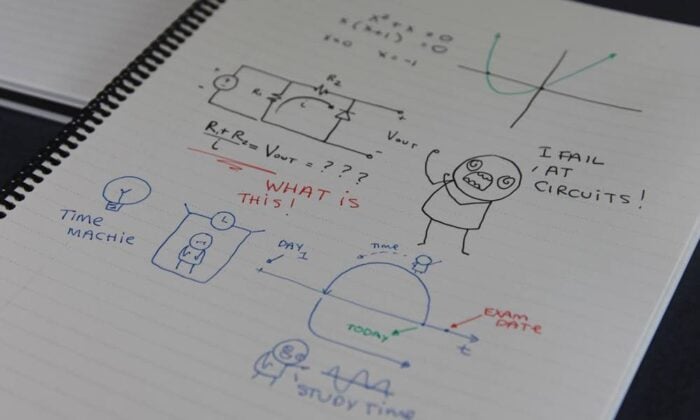 x² + x = 0
x(x+1) = 0
x=0 x=-1
R2
+
R1
i
+
-
-
VOUT
R1 + R2 = VOUT = ? ? ?
i
WHAT IS
THIS!
I FAIL
AT
CIRCUITS!
TIME
MACHIE
DAY
1
TIME
TODAY
EXAM
DATE
t
STUDY TIME